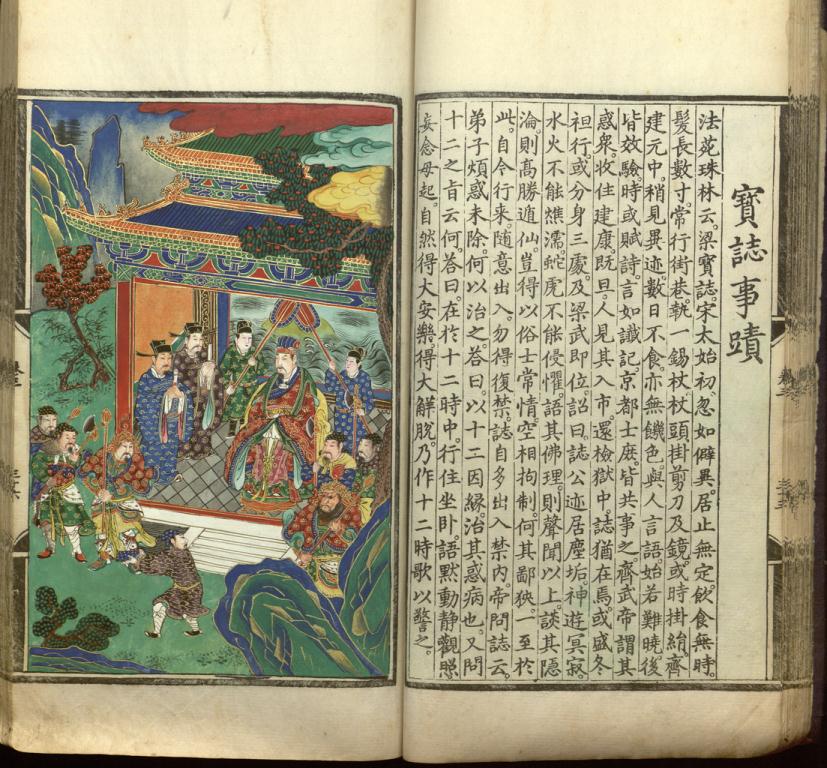 寶誌事蹟
法苑珠林云。梁寶誌。宋太始初。忽如僻異。居止無定。飲食無時。
髮長數寸。常行街巷。執一錫杖。杖頭掛剪刀及鏡。或時掛絹。齊
建元中。稍見異迹。數日不食。亦無饑色。與人言語。始若難曉。後
皆效驗。時或賦詩。言如讖記。京都士庶。皆共事之。齊武帝謂其
惑衆。收住建康。既旦。人見其入市。還檢獄中。誌猶在焉。或盛冬
袒行。或分身三處。及梁武即位。詔曰。誌公迹居塵垢。神遊冥寂。
水火不能燋濡。蛇虎不能侵懼。語其佛理。則聲聞以上。談其隱
淪。則高勝遁仙。豈得以俗士常情。空相拘制。何其鄙狹。一至於
此。自今行來。隨意出入。勿得復禁。誌自多出入禁內。帝問誌云。
弟子煩惑未除。何以治之。答曰。以十二因緣。治其惑病也。又問
十二之旨云何。答曰。在於十二時中。行住坐卧。語默動静觀照。
妄念毋起。自然得大安樂。得大解脫。乃作十二時歌以警之。